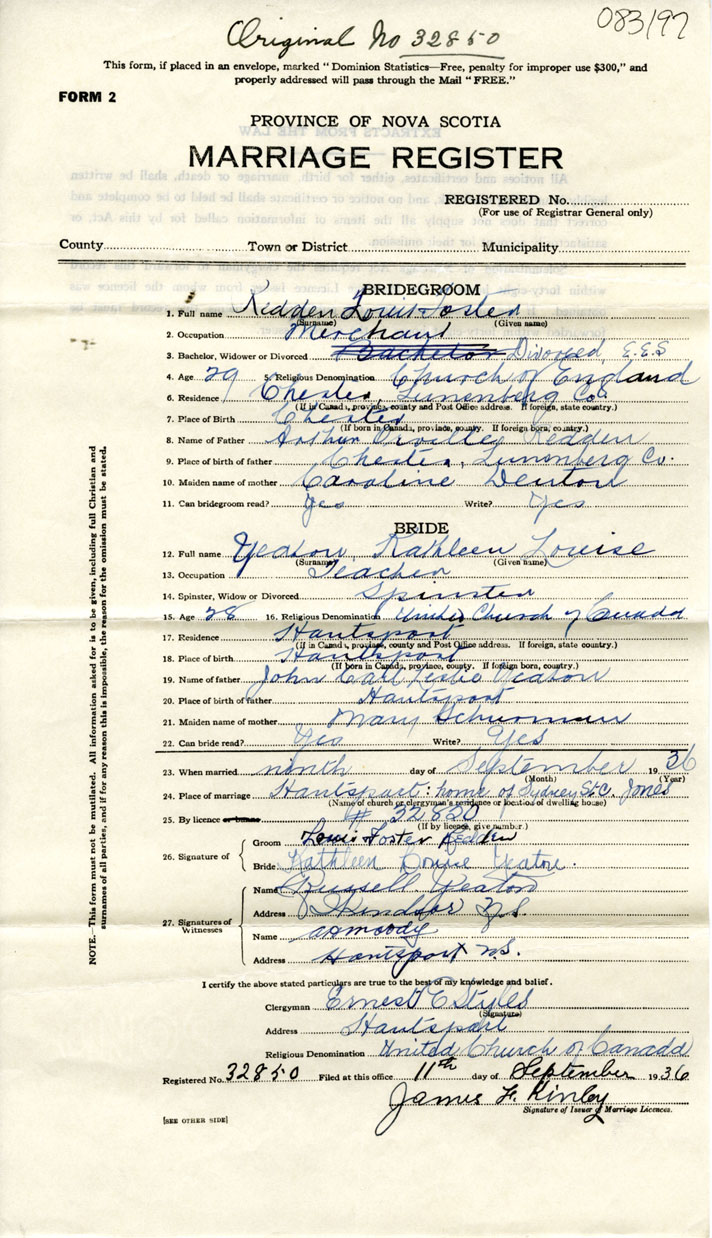 083/97
Original No 32850
This form, if placed in an envelope, marked "Dominion Statistics—Free, penalty for improper use $300," and
properly addressed will pass through the Mail "FREE."
FORM 2
PROVINCE OF NOVA SCOTIA
MARRIAGE REGISTER
REGISTERED No.
(For use of Registrar General only)
County Town or District Municipality
BRIDEGROOM
1. Full name Redden Louis Foster
(Surname) (Given name)
2. Occupation Merchant
3. Bachelor, Widower or Divorced Bachelor Divorced, E.E.S
4. Age 29 5. Religious Denomination Church of England
6. Residence Chester, Lunenberg Co.
(If in Canada, province, county and Post Office address. If foreign, state country.)
7. Place of Birth Chester
(If born in Canada, province, county. If foreign born, country.)
8. Name of Father Arthur Redden
9. Place of birth of father Chester, Lunenberg Co.
10. Maiden name of mother Caroline Denton
11. Can bridegroom read? Yes Write? Yes
BRIDE
12. Full name Yeaton Kathleen Louise
(Surname) (Given name)
13. Occupation Teacher
14. Spinster, Widow or Divorced Spinster
15. Age 28 16. Religious Denomination United Church of Canada
17. Residence Hantsport
(If in Canada, province, county and Post Office address. If foreign, state country.)
18. Place of birth Hantsport
(If born in Canada, province, county. If foreign born, country.)
19. Name of father John Carl Leslie Yeaton
20. Place of birth of father Hantsport
21. Maiden name of mother Mary Schurman
22. Can bride read? Yes Write? Yes
23. When married ninth day of September 1936
(Month) (Year)
24. Place of marriage Hantsport: home of Sydney St.C. Jones
(Name of church or clergyman's residence or location of dwelling house)
25. By licence or banns # 32850
(If by licence, give number.)
26. Signature of
Groom Louis Foster Redden
Bride Kathleen Louise Yeaton.
27. Signatures of Witnesses
Name Russell Yeaton
Address Windsor N.S.
Name Moody
Address Hantsport N.S.
I certify the above stated particulars are true to the best of my knowledge and belief.
Clergyman Ernest E Styles
(Signature)
Address Hantsport
Religious Denomination United Church of Canada
Registered No. 32850 Filed at this office 11th day of September 1936
James F. Kinley
Signature of Issuer of Marriage Licences.
[SEE OTHER SIDE]
NOTE.—This form must not be mutilated. All information asked for is to be given, including full Christian and
surnames of all parties, and if for any reason this is impossible, the reason for the omission must be stated.